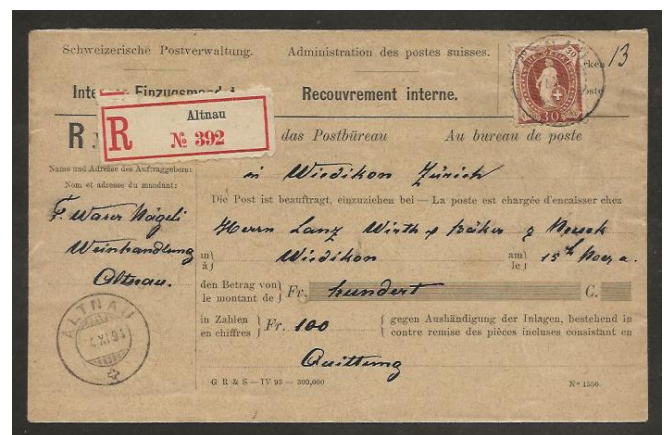 Schweizerische Postverwaltung. Administration des postes suisses.
13
30
Recouvrement interne.
R Altnau
№ 392
R
das Postbüreau Au bureau de poste
Name und Adresse des Auftraggebers:
Nom et adresse du mandant:
in Wiedikon Zürich
Die Post ist beauftragt, einzuziehen bei — La poste est chargée d'encaisser chez
F. Waser Nägeli
Weinhandlung
Altnau.
Herrn Lanz Wirth
in à } Wiedikon am le } 15
den Betrag von le montant de } Fr. hundert C.
in Zahlen en chiffres } Fr. 100 { gegen Aushändigung der Inlagen, bestehend in contre remise des pièces incluses consistant en
Quittung
ALTNAU
G R & S — IV 93 — 300,000 Nº 1550.